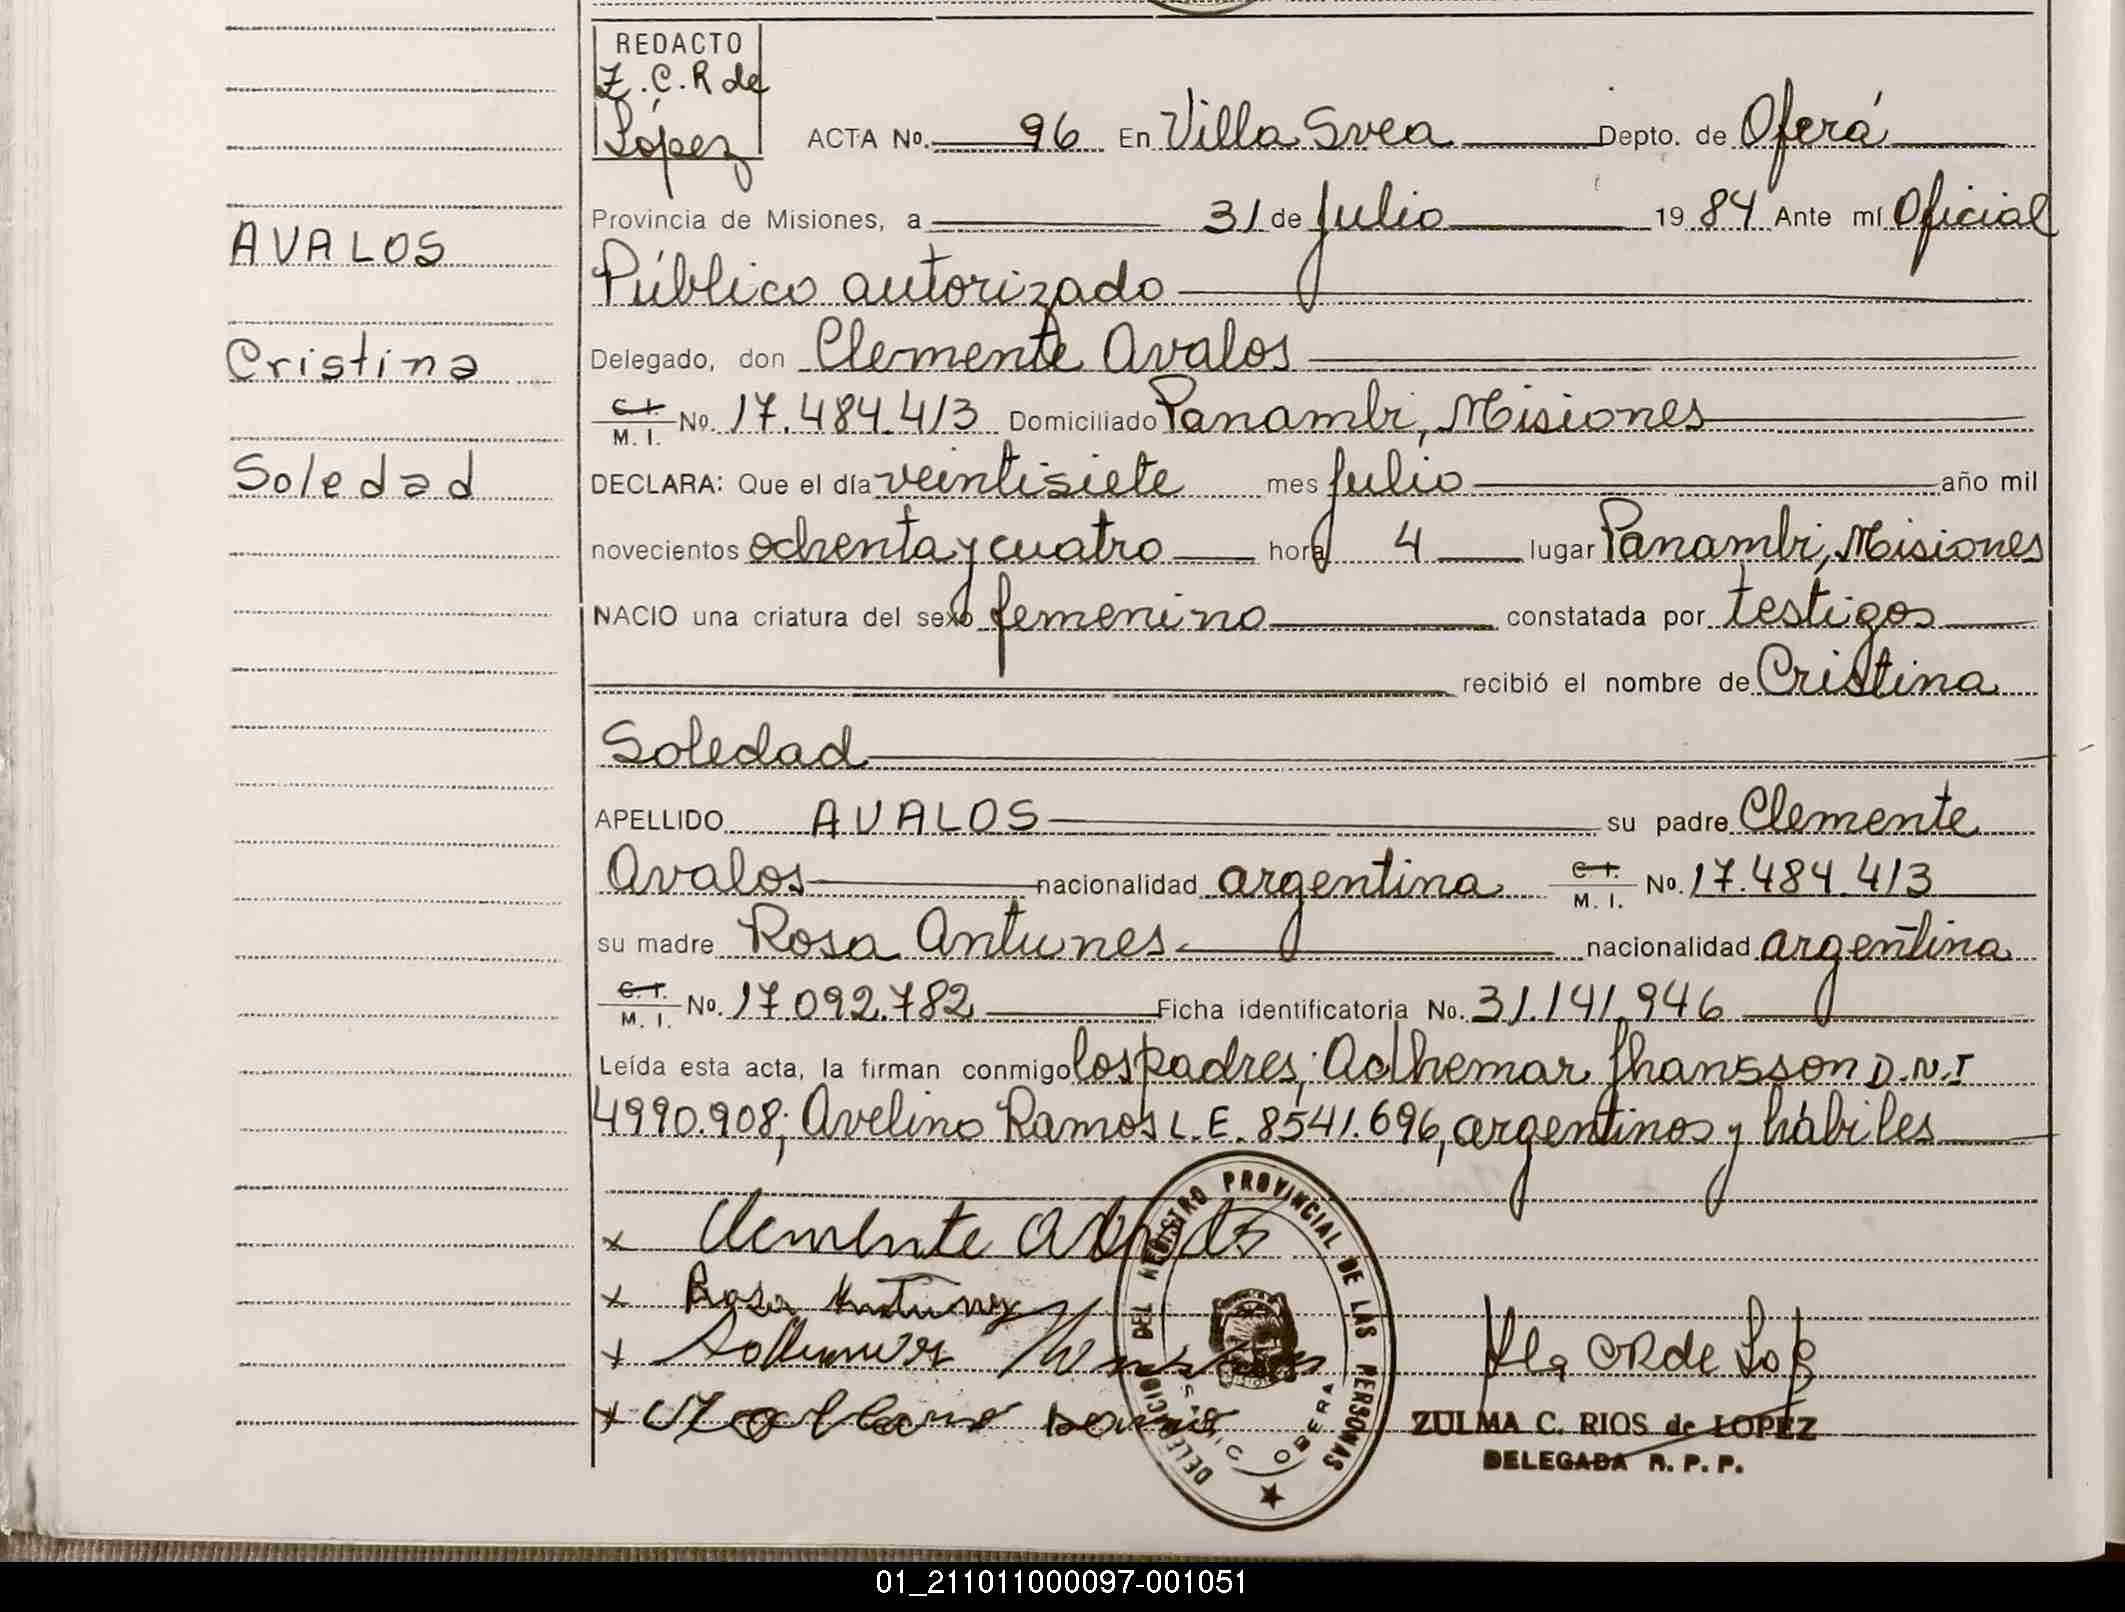 REDACTO
Z.C.R de
López
ACTA No. 96 En Villa Svea Depto. de Oberá
Provincia de Misiones, a 31 de Julio 1984 Ante mí Oficial
Público autorizado
Delegado, don Clemente Avalos
C.I. M.I. No. 17.484.413 Domiciliado Panambi, Misiones
DECLARA: Que el día veintisiete mes julio año mil
novecientos ochenta y cuatro hora 4 lugar Panambi, Misiones
NACIO una criatura del sexo femenino constatada por testigos
recibió el nombre de Cristina
Soledad
APELLIDO AVALOS su padre Clemente
Avalos nacionalidad argentina C.I. M.I. No. 17.484.413
su madre Rosa Antunes nacionalidad argentina
C.I. M.I. No. 17.092.782 Ficha identificatoria No. 31.141.946
Leída esta acta, la firman conmigo los padres; Adhemar Jhansson D.N.I
4990.908; Avelino Ramos L.E. 8541.696, argentinos y hábiles
AVALOS
Cristina
Soledad
x Clemente Avalos
x Rosa Antunez
x
x
DEL REGISTRO PROVINCIAL DE LAS PERSONAS
OBERA
ZULMA C. RIOS de LOPEZ
DELEGADA R. P. P.
01_211011000097-001051